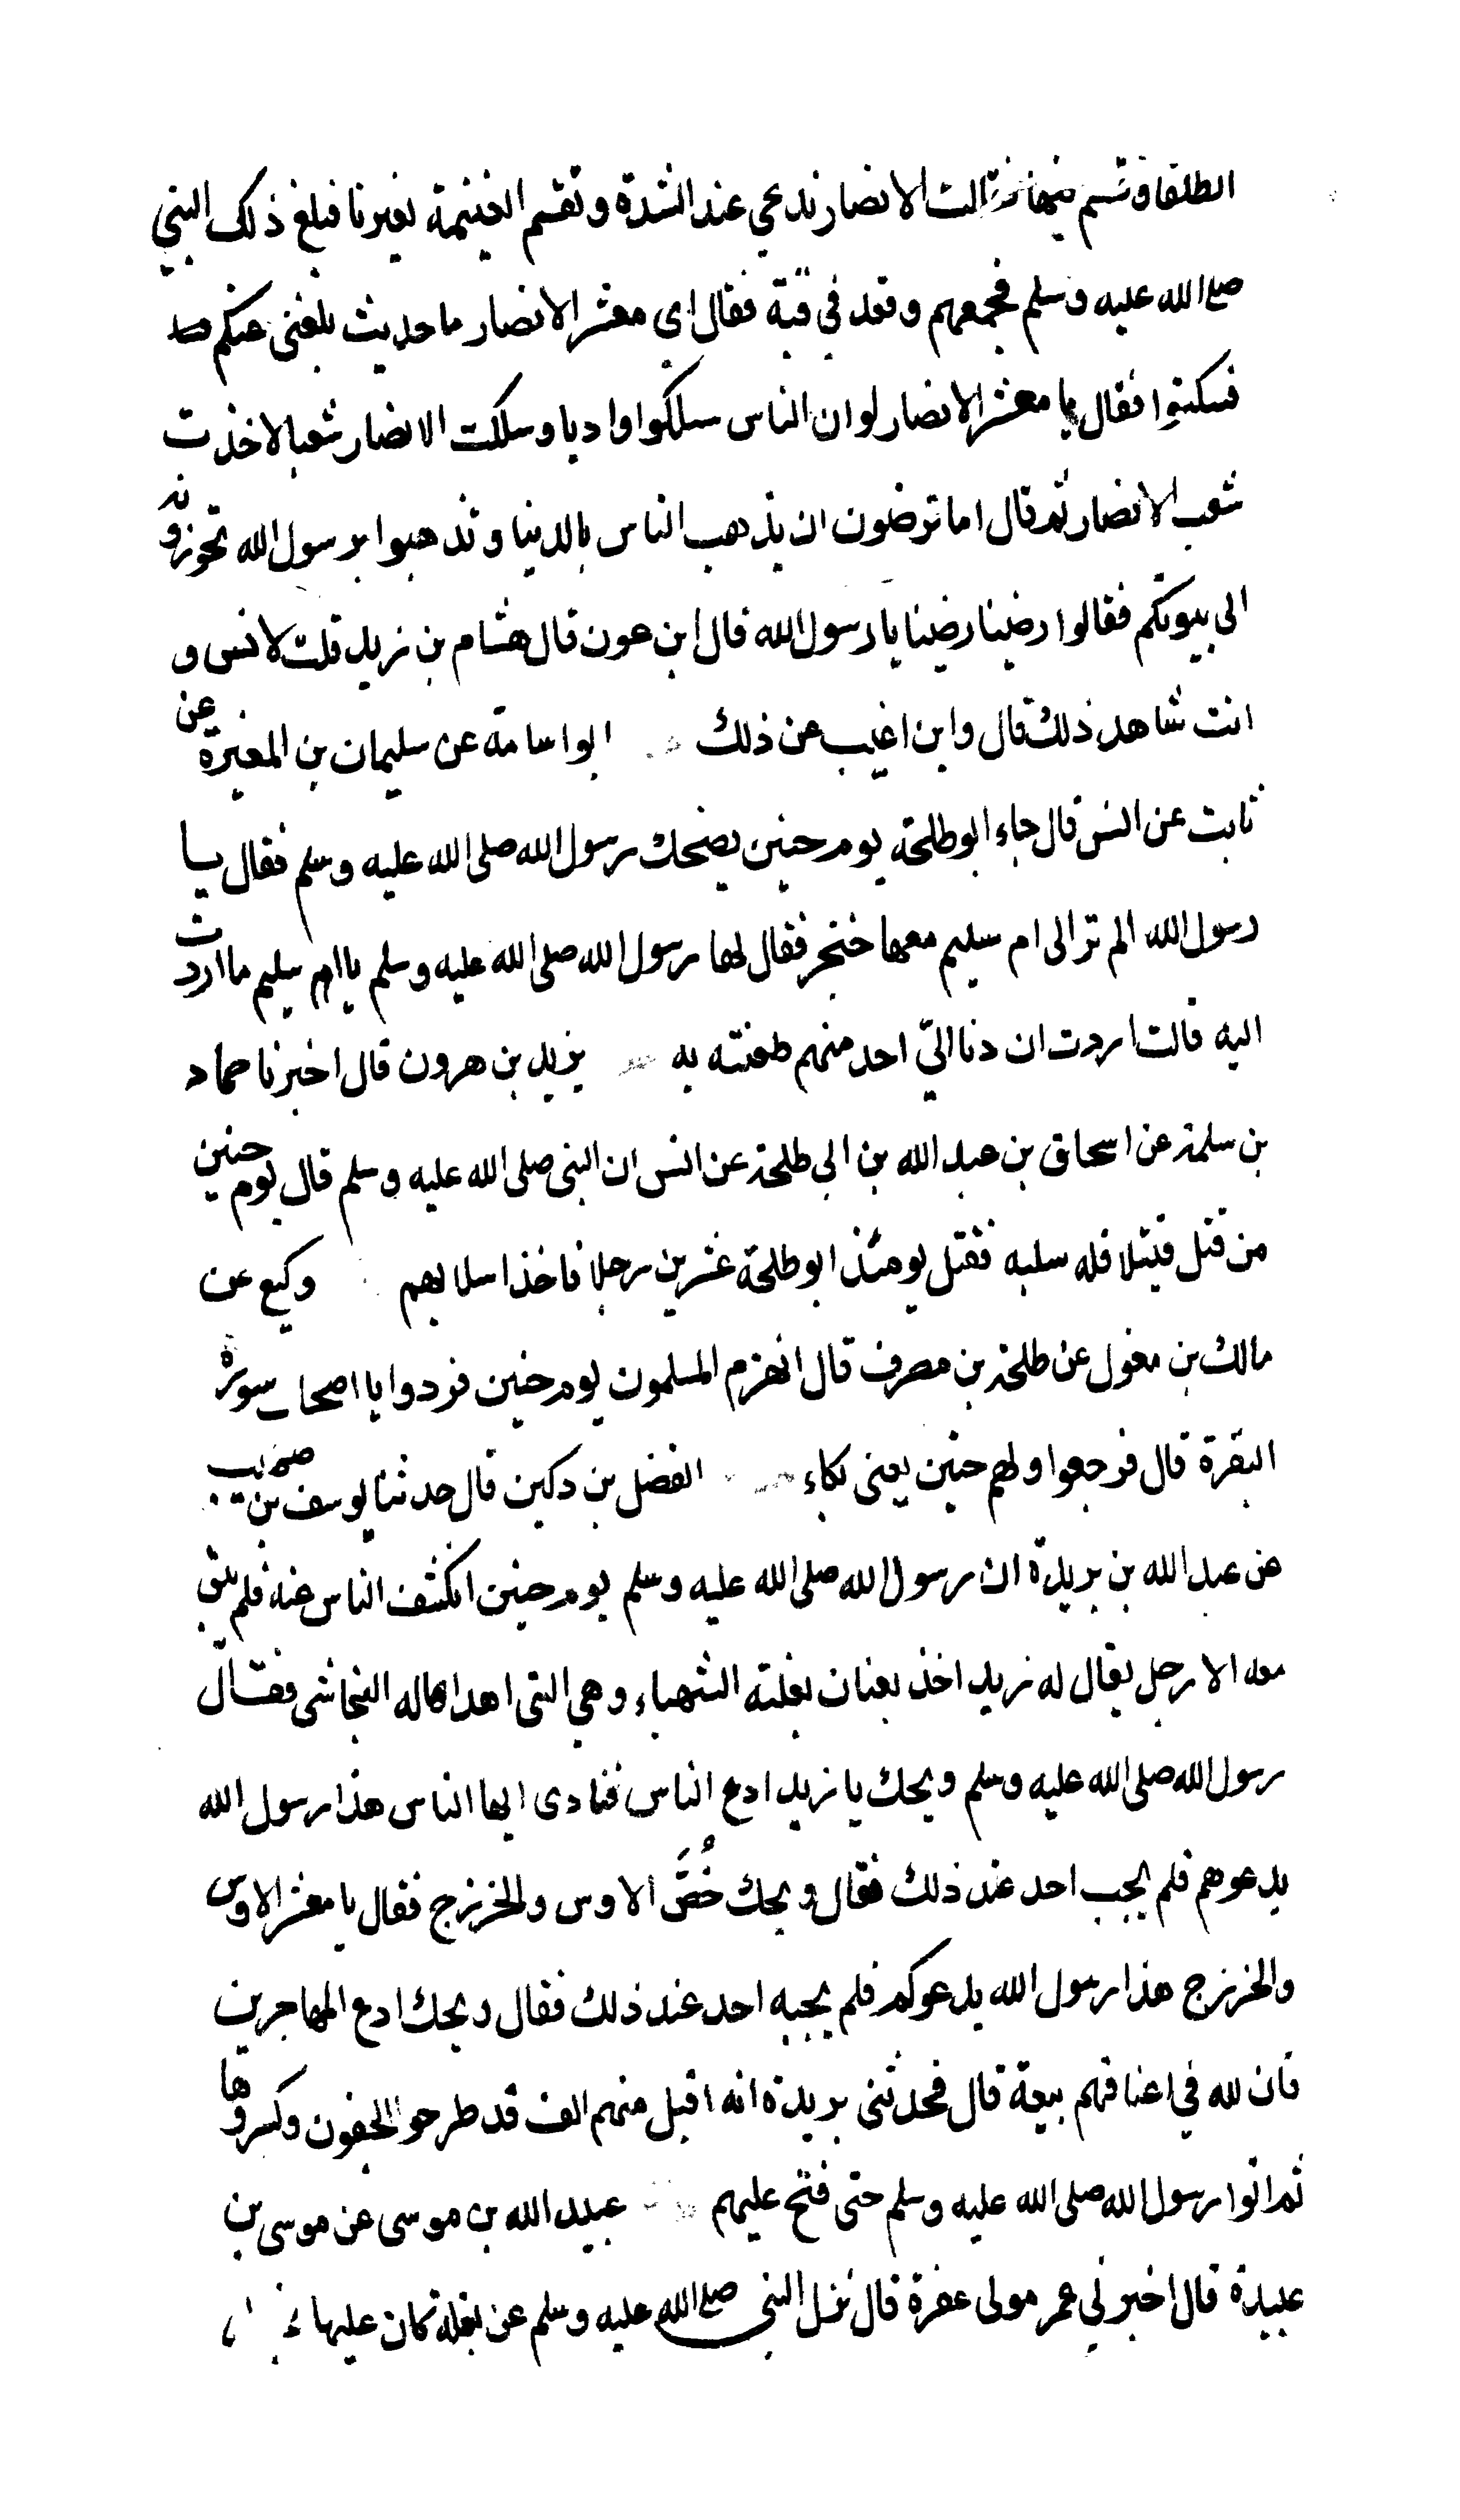 الطلقا وقسم فيها فقالت الانصار ندعى عند الشدة وتقسم الغنيمة لغيرنا فبلغ ذلك النبي
صلى الله عليه وسلم فجمعهم وقعد في قبة فقال اى معشر الانصار ما حديث بلغنى عنكم
فسكتوا فقال يا معشر الانصار لو ان الناس سلكوا واديا وسلكت الانصار شعبا لاخذت
شعب الانصار ثم قال اما ترضون ان يذهب الناس بالدنيا وتذهبوا برسول الله تحوزونه
الى بيوتكم فقالوا رضينا رضينا يا رسول الله قال ابن عون قال هشام بن زيد قلت لانس و
انت شاهد ذلك قال واين اغيب عن ذلك ابو اسامة عن سليمان بن المغيرة عن
ثابت عن انس قال جاء ابو طلحة يوم حنين يضحك رسول الله صلى الله عليه وسلم فقال يا
رسول الله الم تر الى ام سليم معها خنجر فقال لها رسول الله صلى الله عليه وسلم يا ام سليم ما اردت
اليه قالت اردت ان دنا الىّ احد منهم طعنته به يزيد بن هرون قال اخبرنا حماد
بن سلمة عن اسحاق بن عبد الله بن ابي طلحة عن انس ان النبى صلى الله عليه وسلم قال يوم حنين
من قتل قتيلا فله سلبه فقتل يومئذ ابو طلحة عشرين رجلا فاخذ اسلابهم وكيع عن
مالك بن مغول عن طلحة بن مصرف قال انهزم المسلمون يوم حنين فنودوا يا اصحاب سورة
البقرة قال فرجعوا ولهم حنين يعنى بكاء الفضل بن دكين قال حدثنا يوسف بن صهيب
عن عبد الله بن بريدة ان رسول الله صلى الله عليه وسلم يوم حنين انكشف الناس عنه فلم يبق
معه الا رجل يقال له زيد اخذ بعنان بغلته الشهباء وهي التى اهداها له النجاشى فقال
رسول الله صلى الله عليه وسلم ويحك يا زيد ادع الناس فنادى ايها الناس هذا رسول الله
يدعوهم فلم يجب احد عند ذلك فقال ويحك خُصَّ الاوس والخزرج فقال يا معشر الاوس
والخزرج هذا رسول الله يدعوكم فلم يجبه احد عند ذلك فقال ويحك ادع المهاجرين
فان لله في اعناقهم بيعة قال فحدثنى بريدة انه اقبل منهم الف قد طرحوا الجفون وكسروها
ثم اتوا رسول الله صلى الله عليه وسلم حتى فتح عليهم عبيد الله بن موسى عن موسى بن
عبيدة قال اخبرني عمر مولى عفرة قال نزل النبى صلى الله عليه وسلم عن بغلة كان عليها